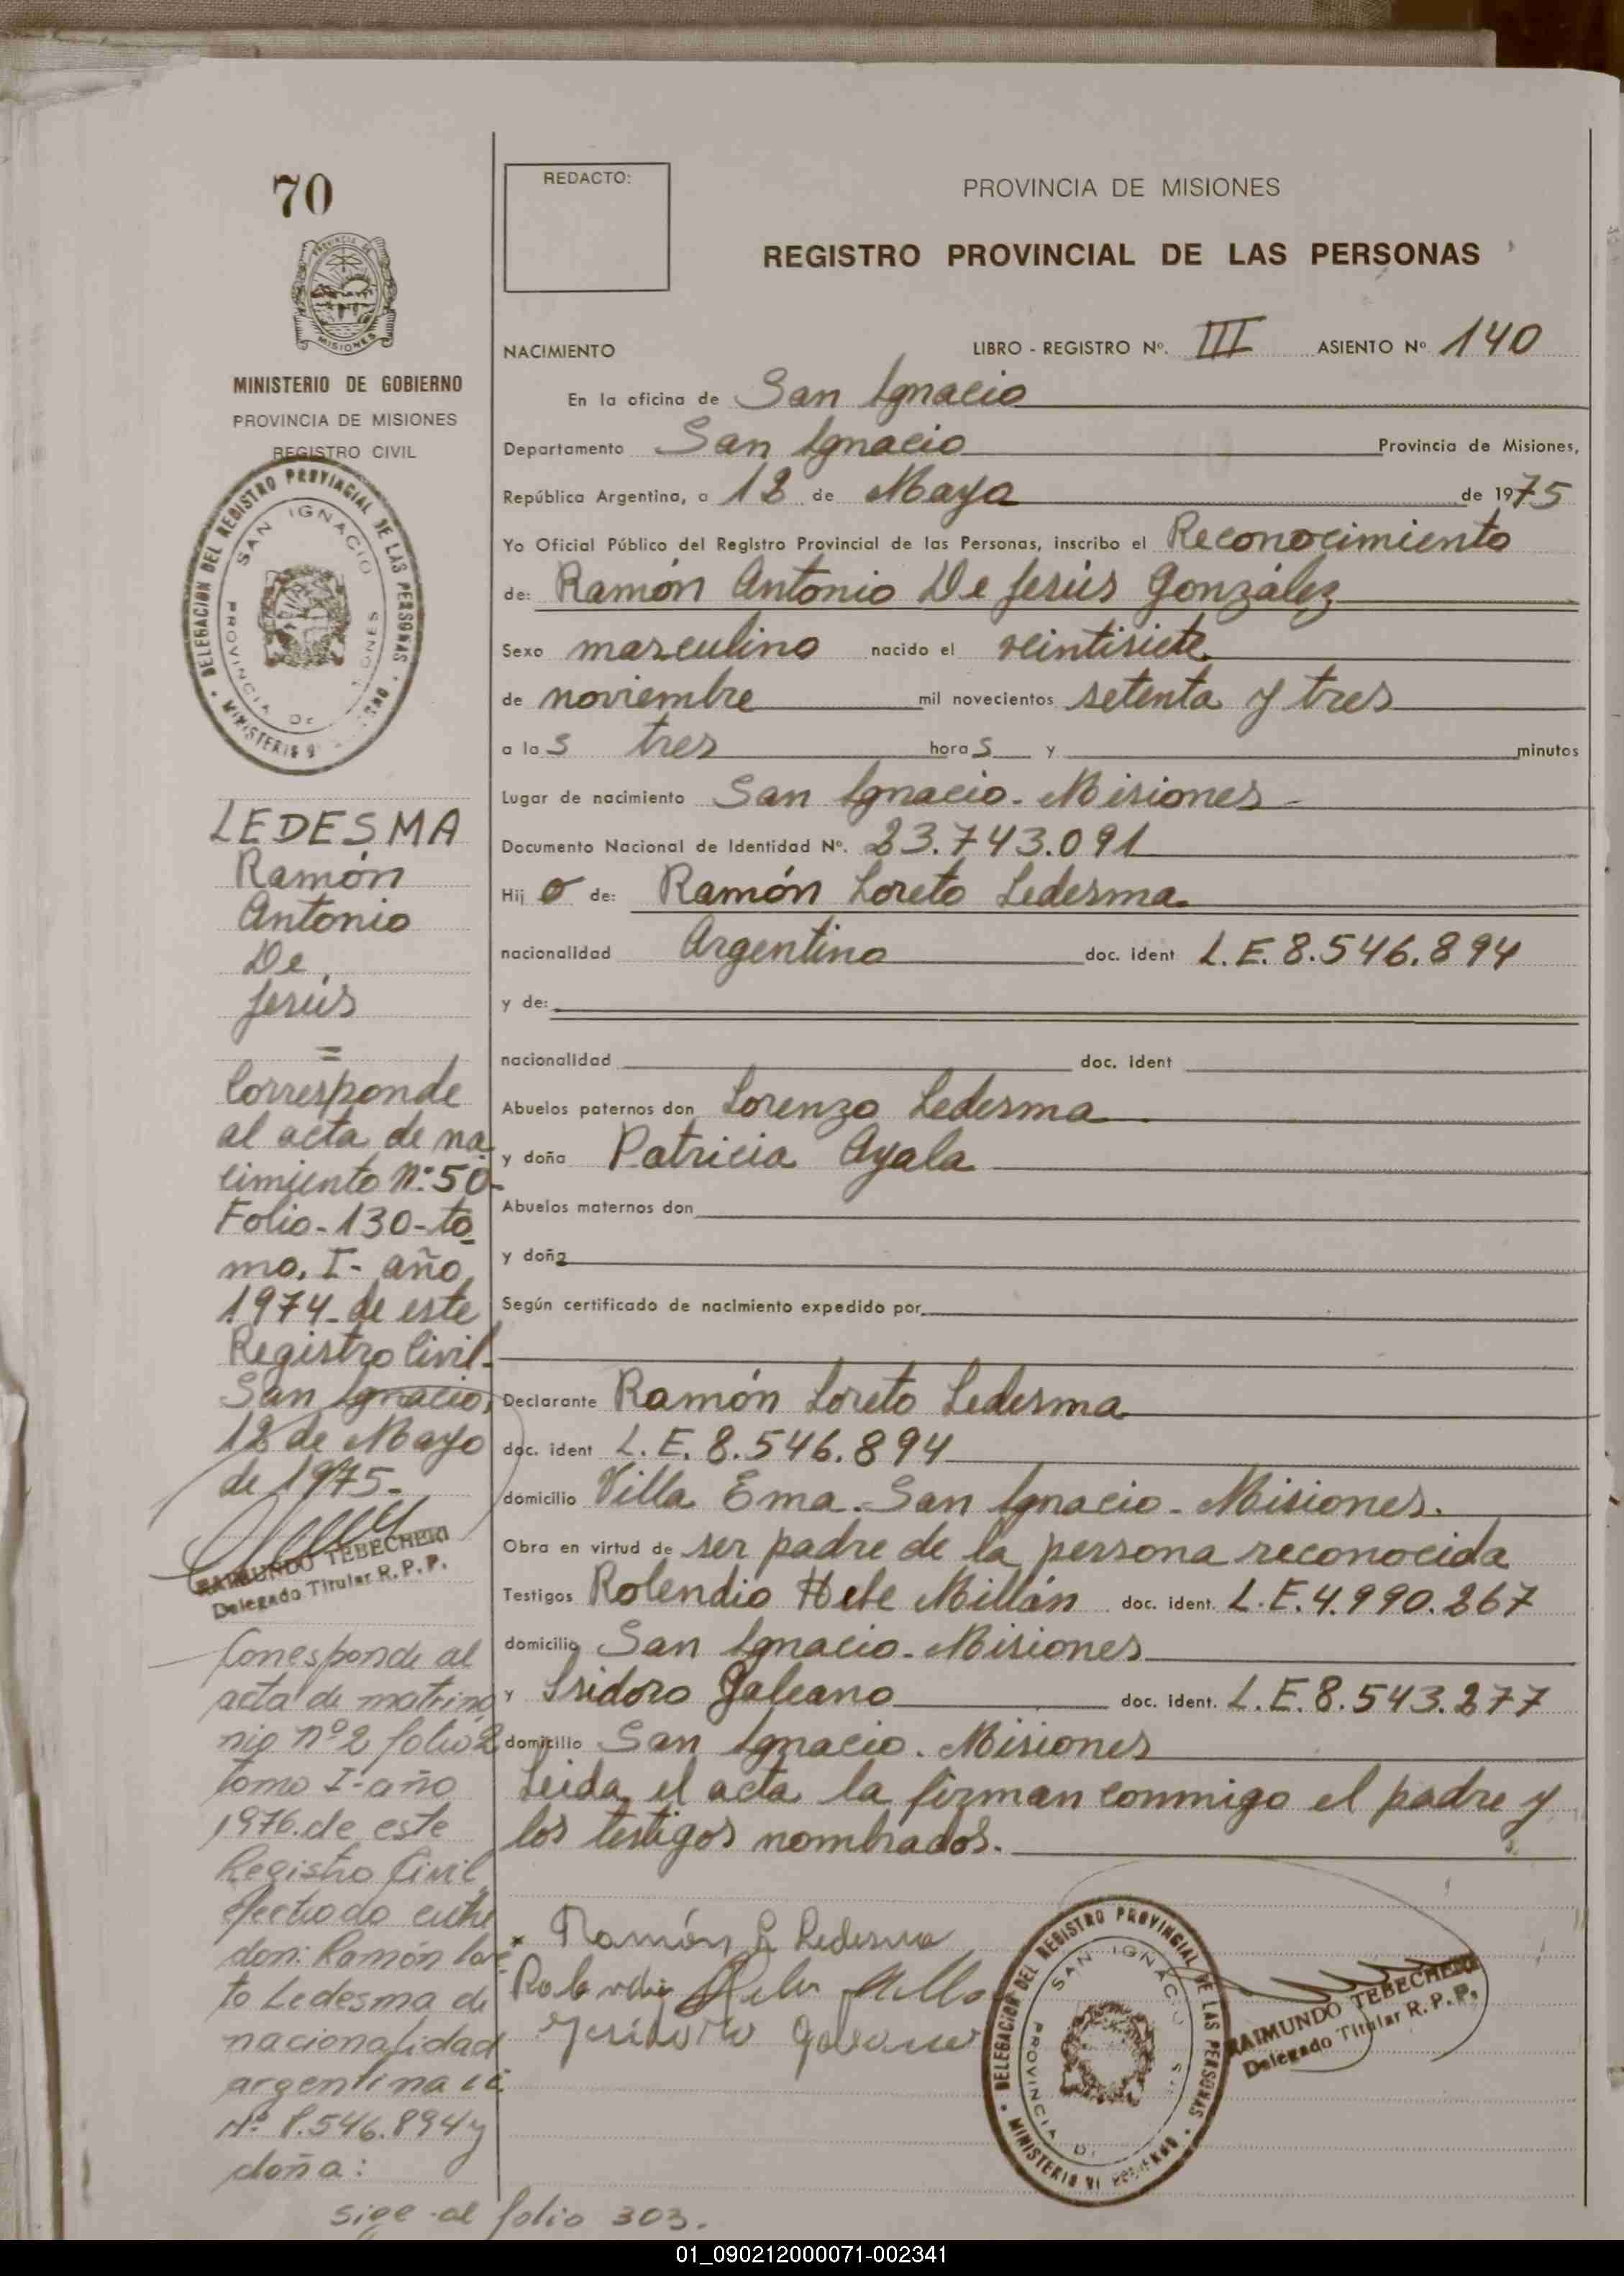 70
PROVINCIA DE
MISIONES
MINISTERIO DE GOBIERNO
PROVINCIA DE MISIONES
REGISTRO CIVIL
DELEGACION DEL REGISTRO PROVINCIAL DE LAS PERSONAS
SAN IGNACIO
PROVINCIA DE
LEDESMA
Ramón
Antonio
De
Jesús
=
Corresponde
al acta de na
cimiento Nº: 50-
Folio-130-to
mo. I- año
1974-de este
Registro Civil-
San Ignacio,
12 de Mayo
de 1975-
RAIMUNDO TEBECHERI
Delegado Titular R.P.P.
Corresponde al
acta de matrimo
nio nº2 folio 2
tomo I-año
1976.de este
Registro Civil
efectuado entre
don: Ramón Lore
to Ledesma de
nacionalidad
argentina
Nº 8.546.894 y
doña:
sige al folio 303.
REDACTO:
PROVINCIA DE MISIONES
REGISTRO PROVINCIAL DE LAS PERSONAS
NACIMIENTO LIBRO - REGISTRO Nº. III ASIENTO Nº 140
En la oficina de San Ignacio
Departamento San Ignacio Provincia de Misiones,
República Argentina, a 12 de Mayo de 1975
Yo Oficial Público del Registro Provincial de las Personas, inscribo el Reconocimiento
de: Ramón Antonio De Jesús González
Sexo masculino nacido el veintisiete
de noviembre mil novecientos setenta y tres
a las tres horas y minutos
Lugar de nacimiento San Ignacio. Misiones-
Documento Nacional de Identidad Nº. 23.743.091
Hijo de: Ramón Loreto Ledesma
nacionalidad Argentino doc. ident L.E. 8.546.894
y de:
nacionalidad doc. ident
Abuelos paternos don Lorenzo Ledesma
y doña Patricia Ayala
Abuelos maternos don
y doña
Según certificado de nacimiento expedido por
Declarante Ramón Loreto Ledesma
doc. ident L.E. 8.546.894
domicilio Villa Ema.-San Ignacio-Misiones.
Obra en virtud de ser padre de la persona reconocida
Testigos Rolendio Millán doc. ident. L.E.4.990.267
domicilio San Ignacio-Misiones
y Isidoro Galeano doc. ident. L.E.8.543.277
domicilio San Ignacio. Misiones
Leida el acta la firman conmigo el padre y
los testigos nombrados.
Ramón L Ledesma
DELEGACION DEL REGISTRO PROVINCIAL DE LAS PERSONAS
SAN IGNACIO
PROVINCIA
RAIMUNDO TEBECHERI
Delegado Titular R.P.P.
01_090212000071-002341